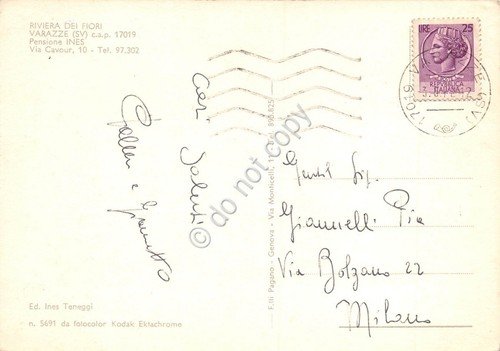 RIVIERA DEI FIORI
VARAZZE (SV) c.a.p. 17019
Pensione INES
Via Cavour, 10 - Tel. 97.302
Cari saluti
Ed. Ines Teneggi
n. 5691 da fotocolor Kodak Ektachrome
F.lli Pagano - Genova - Via Monticelli, 11 - Tel. 890.825
do not copy
LIRE 25
REPUBBLICA
ITALIANA
Gentil Sig.
Giannelli Pia
Via Bolzano 22
Milano